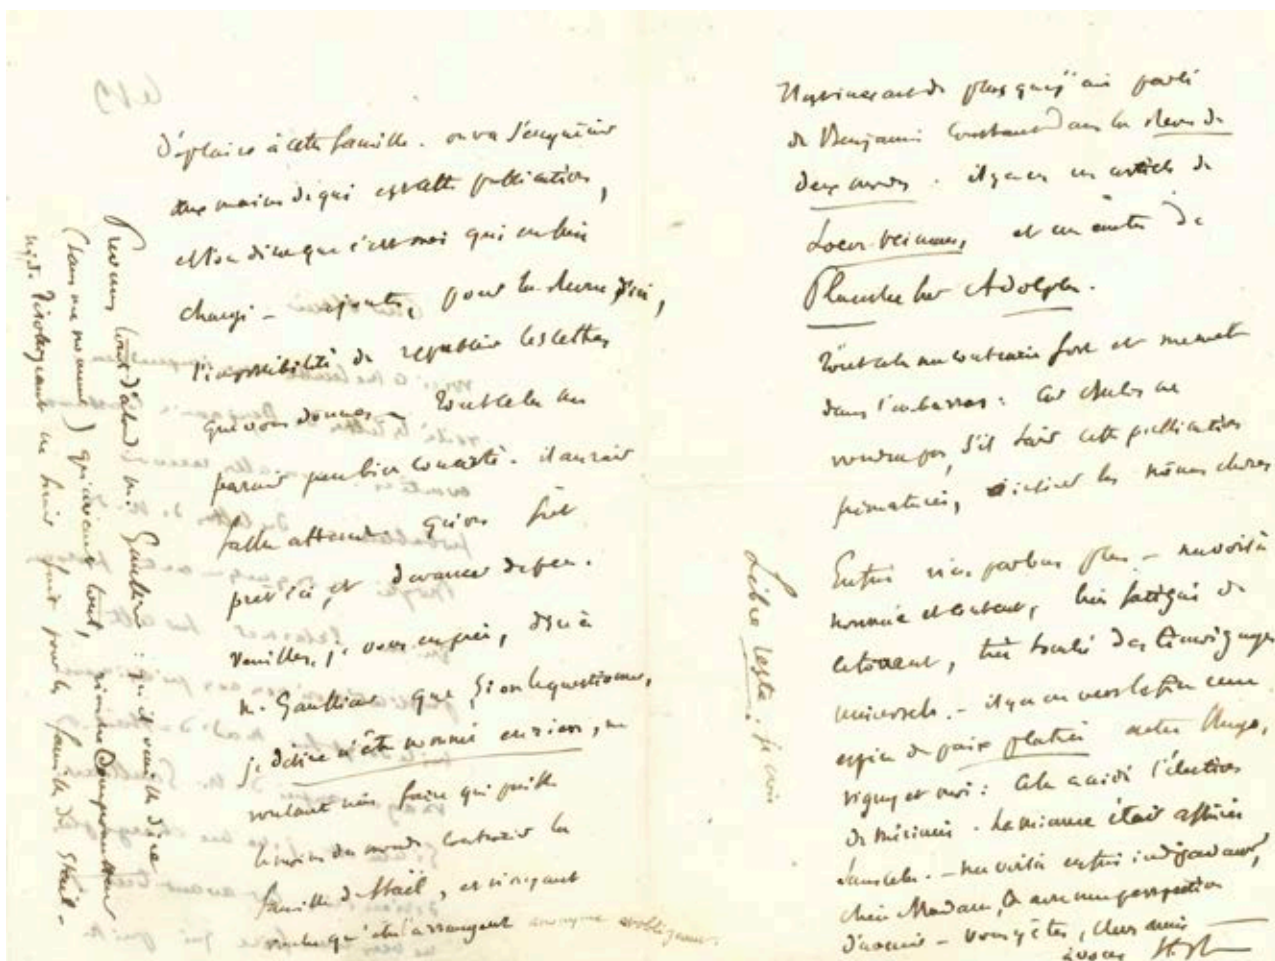 déplaire à cette famille. on va s'enquérir
aux mains de qui est cette publication,
et l'on dira que c'est moi qui en suis
chargé — ajoutez, pour la Revue d'ici,
l'impossibilité de republier les lettres
que vous donnez — Tout cela me
paraît peu bien concerté. il aurait
fallu attendre qu'on fût
prêt ici, et devancer de peu.
Veuillez, je vous en prie, dire à
M. Gaullieur que, si on le questionne,
je désire n'être nommé en rien, ne
voulant rien faire qui puisse
le moins du monde contrarier la
famille de Staël, et n'ayant
Prévenez tout d'abord M. Gaullieur : qu'il veuille dire
(sans me nommer) qu'avant tout, rien de compromettant
ni de désobligeant ne serait pour la famille de Staël —
de plus que j'ai parlé
de Benjamin Constant dans la Revue des
deux mondes. il y a eu un article de
Loeve-Veimars, et un autre de
Planche sur Adolphe.
Tout cela me contrarie fort et me met
dans l'embarras : car Buloz ne
voudra pas, s'il sait cette publication
prématurée, les mêmes choses
Enfin n'en parlons plus — me voilà
nommé et content, bien fatigué de
ce torrent, très touché des témoignages
universels. — il y a eu vers la fin une
espèce de paix plâtrée entre Hugo,
Vigny et moi : cela a aidé l'élection
de Mérimée. La mienne était assurée
sans cela. — me voilà enfin indépendant,
chère Madame, & avec une perspective
d'avenir — vous y êtes, chers amis
à vous
Libre reste : je vais